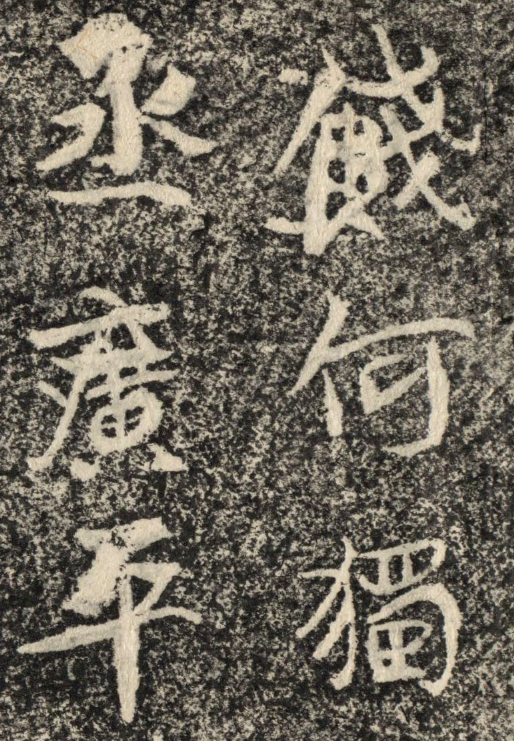 餞何獨
丞廣平